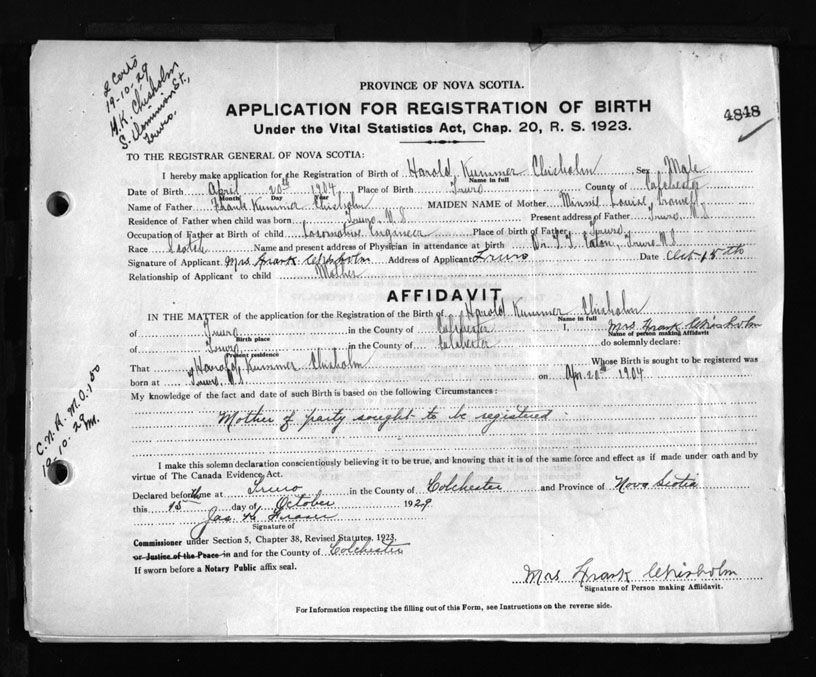 2 Certs
19-10-29
H.K. Chisholm
S. Dominion St.,
Truro.
4848
PROVINCE OF NOVA SCOTIA.
APPLICATION FOR REGISTRATION OF BIRTH
Under the Vital Statistics Act, Chap. 20, R. S. 1923.
TO THE REGISTRAR GENERAL OF NOVA SCOTIA:
I hereby make application for the Registration of Birth of Harold Kummer Chisholm Sex Male
Name in full
Date of Birth April 20th 1904 Place of Birth Truro County of Colchester
Month Day Year
Name of Father Frank Kummer Chisholm MAIDEN NAME of Mother Minnie Louise
Residence of Father when child was born Truro, N.S. Present address of Father Truro, N.S.
Occupation of Father at Birth of child Locomotive Engineer Place of birth of Father Truro
Race Scotch Name and present address of Physician in attendance at birth Dr. Eaton, Truro N.S.
Signature of Applicant Mrs Frank Chisholm Address of Applicant Truro Date Oct 15th
Relationship of Applicant to child Mother
AFFIDAVIT
IN THE MATTER of the application for the Registration of the Birth of Harold Kummer Chisholm
Name in full
of Truro in the County of Colchester I, Mrs Frank Chisholm
Birth place Name of person making Affidavit
of Truro in the County of Colchester do solemnly declare:
Present residence
That Harold Kummer Chisholm Whose Birth is sought to be registered was
born at Truro, N.S. on Apr. 20th 1904
My knowledge of the fact and date of such Birth is based on the following Circumstances:
Mother of party sought to be registered.
C.N.R. M.O. 1.50
19-10-29
I make this solemn declaration conscientiously believing it to be true, and knowing that it is of the same force and effect as if made under oath and by
virtue of The Canada Evidence Act.
Declared before me at Truro in the County of Colchester and Province of Nova Scotia
this 15th day of October 1929
Jas. Fraser
Signature of
Commissioner under Section 5, Chapter 38, Revised Statutes, 1923,
or Justice of the Peace in and for the County of Colchester
If sworn before a Notary Public affix seal.
Mrs Frank Chisholm
Signature of Person making Affidavit.
For Information respecting the filling out of this Form, see Instructions on the reverse side.